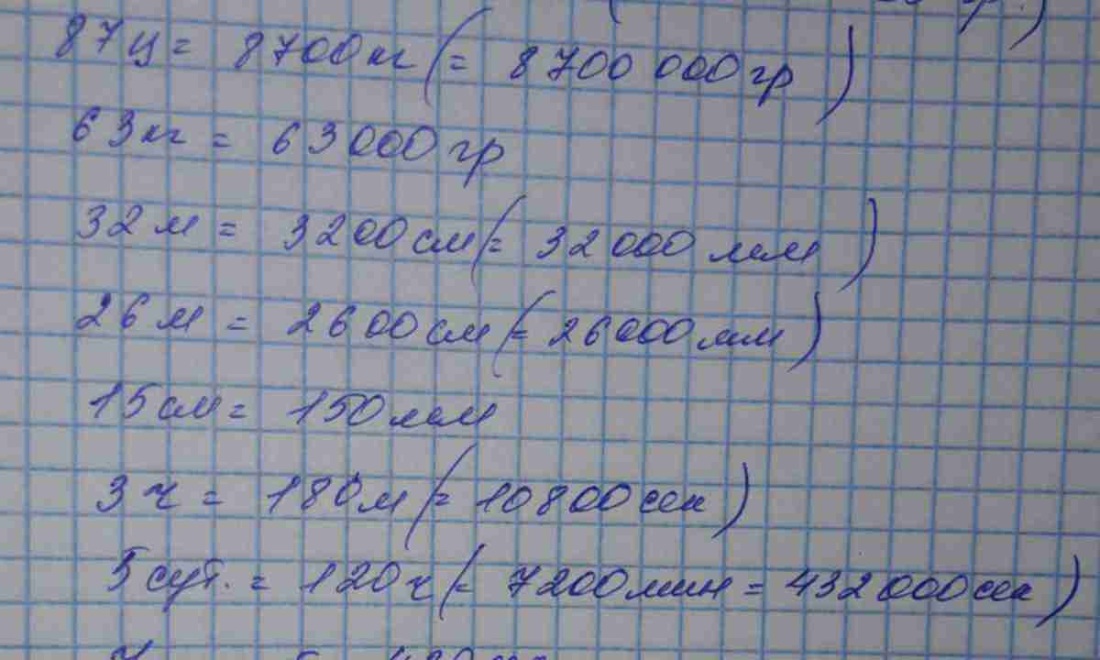 87ц = 8700кг (= 8700 000 гр)
63кг = 63000 гр
32 м = 3200 см (= 32 000 мм)
26 м = 2600 см (= 26000 мм)
15 см = 150 мм
3 ч = 180 м (= 10800 сек)
5 сут. = 120 ч (= 7200 мин = 432 000 сек)